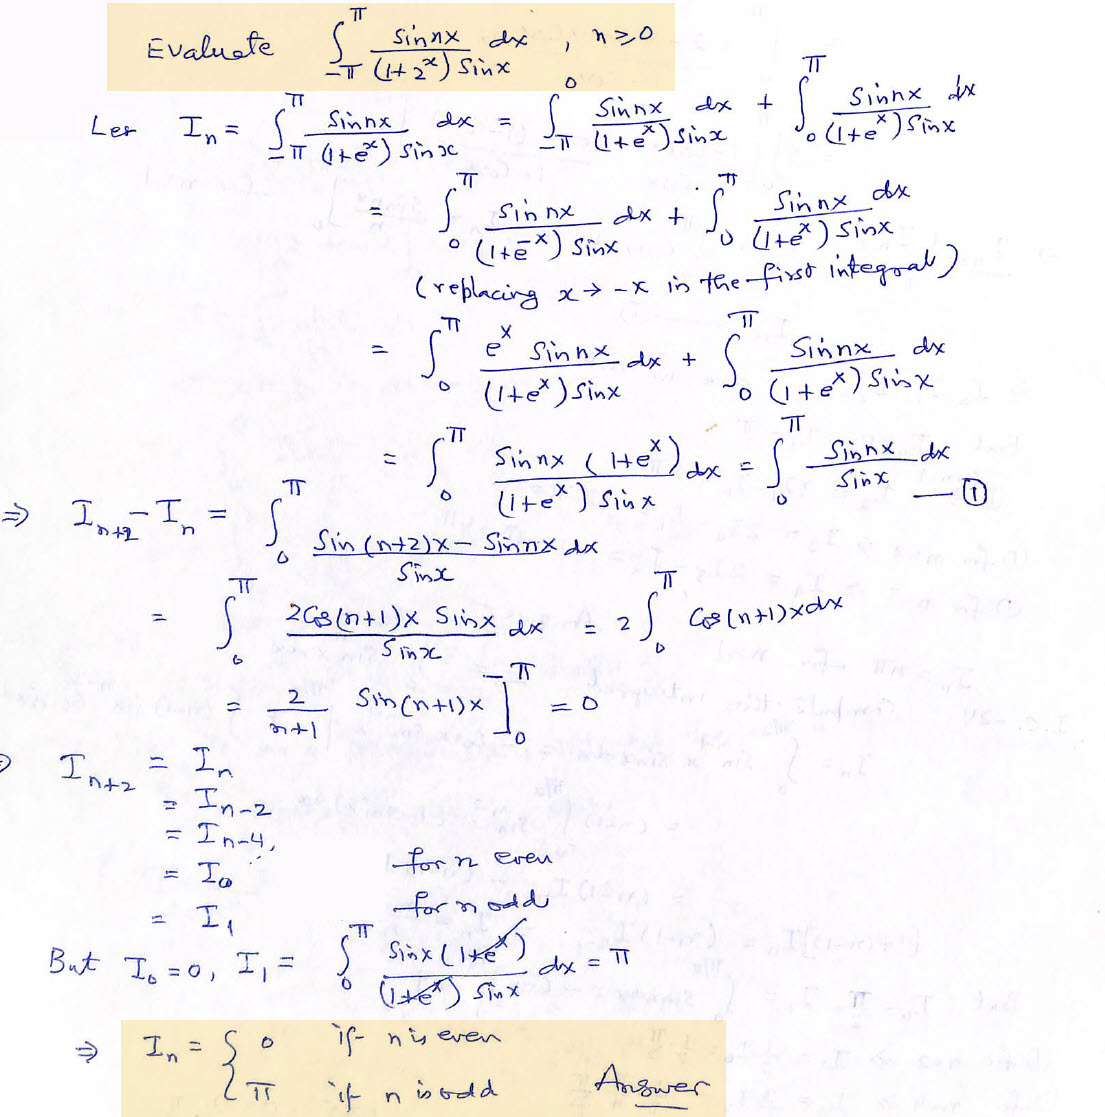 Evaluate ∫_{-π}^{π} \frac{Sin nx}{(1+2^x) Sin x} dx , n ≥ 0
Let I_n = ∫_{-π}^{π} \frac{Sin nx}{(1+e^x) Sin x} dx = ∫_{-π}^{0} \frac{Sin nx}{(1+e^x) Sin x} dx + ∫_{0}^{π} \frac{Sin nx}{(1+e^x) Sin x} dx
= ∫_{0}^{π} \frac{Sin nx}{(1+e^{-x}) Sin x} dx + ∫_{0}^{π} \frac{Sin nx}{(1+e^x) Sin x} dx
(replacing x → -x in the first integral)
= ∫_{0}^{π} \frac{e^x Sin nx}{(1+e^x) Sin x} dx + ∫_{0}^{π} \frac{Sin nx}{(1+e^x) Sin x} dx
= ∫_{0}^{π} \frac{Sin nx (1+e^x)}{(1+e^x) Sin x} dx = ∫_{0}^{π} \frac{Sin nx}{Sin x} dx — ①
⇒ I_{n+2} - I_n = ∫_{0}^{π} \frac{Sin (n+2)x - Sin nx}{Sin x} dx
= ∫_{0}^{π} \frac{2 Cos (n+1)x Sin x}{Sin x} dx = 2 ∫_{0}^{π} Cos (n+1)x dx
= \frac{2}{n+1} Sin (n+1)x ]_{0}^{π} = 0
⇒ I_{n+2} = I_n
= I_{n-2}
= I_{n-4},
= I_0 for n even
= I_1 for n odd
But I_0 = 0, I_1 = ∫_{0}^{π} \frac{Sin x (1+e^x)}{(1+e^x) Sin x} dx = π
⇒ I_n = { 0 if n is even
π if n is odd Answer